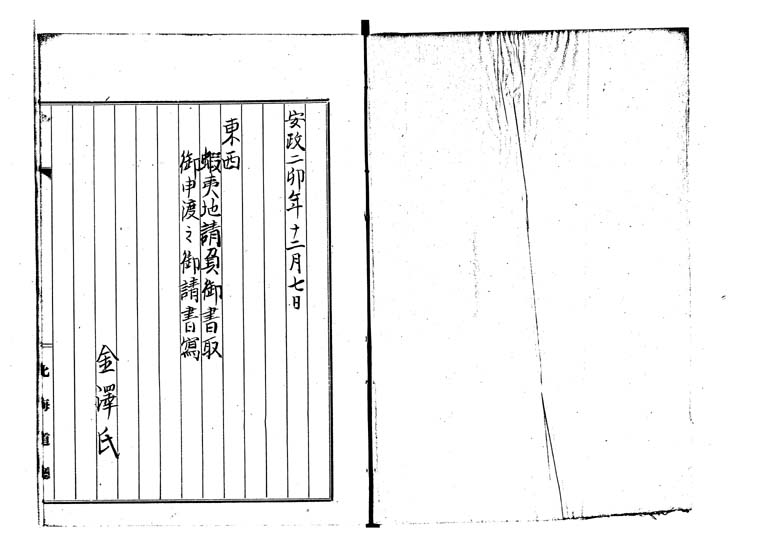 安政二卯年十二月七日
東西
蝦夷地請負御書取
御申渡之御請書寫
金澤氏
北海道